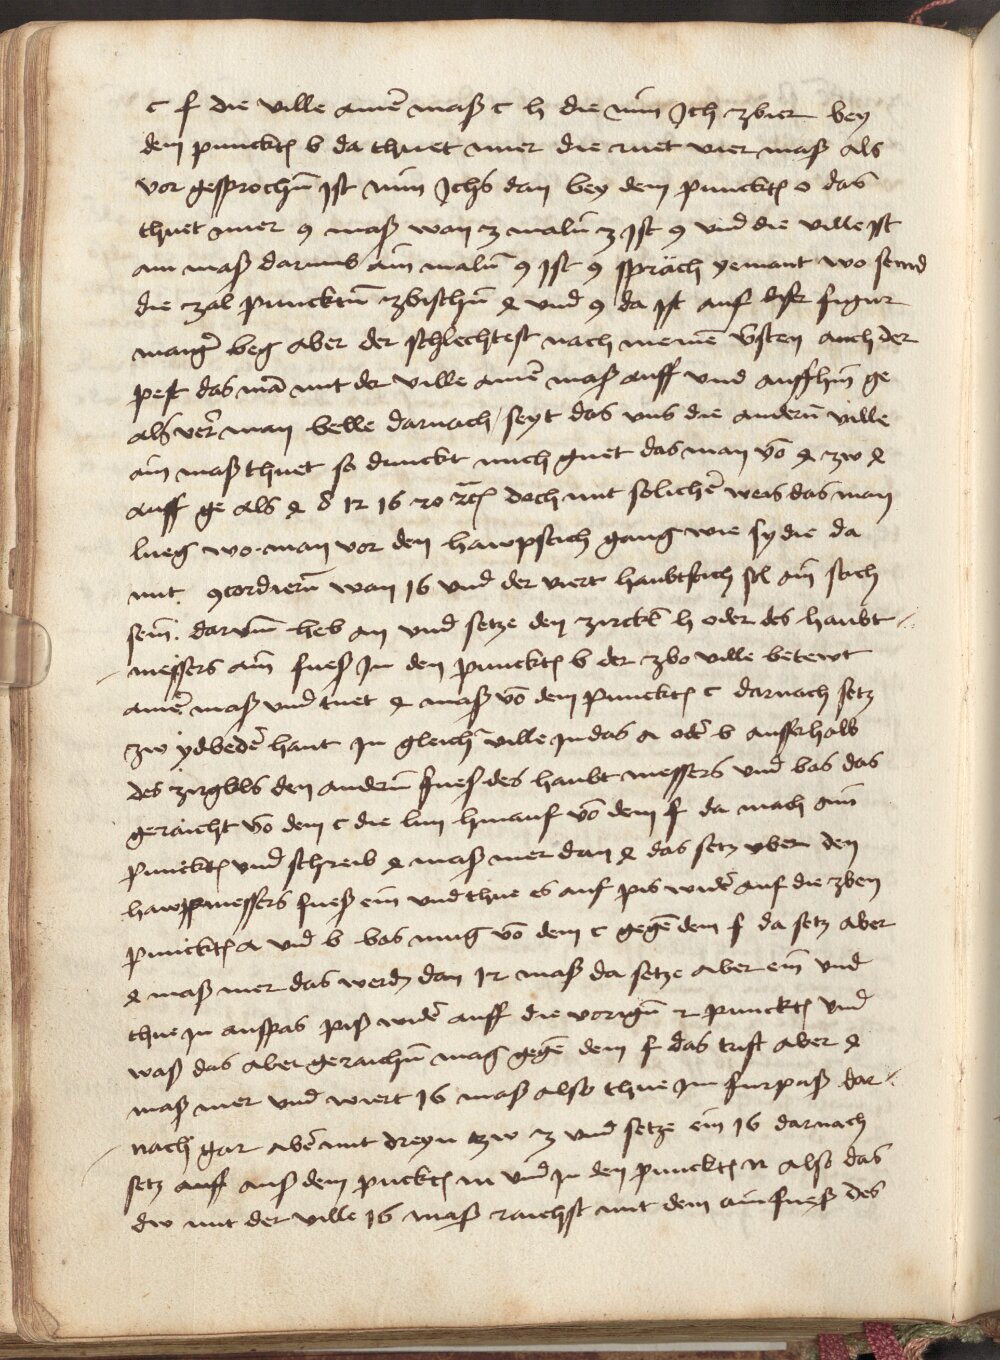 c f die ville ainē maß c h die nim Jch zbier bey
dem punckt͠ b da thuet mer die ruet vier maß als
vor gesprochn̄ jst nim Jchs dan bey dem punckt͠ o das
thuet mer 9 maß wan 3 maln̄ 3 jst 9 vnd die ville jst
ain maß darumb ain maln̄ 9 jst 9 spräch yemant wo seind
die zal punckttn̄ zbischn̄ 4 vnd 9 da jst auf diser figur
maniger beg aber der schlechtest nach meinē v̄sten auch der
pest das mā mit der ville ainē maß auff vnd auffhin ge
als ver man belle darnach / seyt das vns die andern̄ ville
ain maß thuet so dunckt mich guet das man vō 4 zw 4
auff ge als 4 8 12 16 20 &c͠ doch mit solicher weis das man
lueg wo man vor den hawpstich gang wie sy die da
mit 9cordiern̄ wan 16 vnd der viert haubtstich sol ain stich
sein. darum̄ heb an vnd setze den zirckl h oder des haubt
messers ain fues Jn den punckt͠ b der zbo ville betewt
ainē maß vnd tuet 4 maß vō dem punckt͠ c darnach setz
zw ydbeder hant jn gleicher ville jn das a oder b ausserhalb
des zirgkls den andern̄ fues des haubt messers vnd bas das
geraicht vō dem c die lini hinauf vō dem f da mach ain
punckt͠ vnd schreib 4 maß mer dan 4 das setz vber den
hawptmessers fues ein vnd thue es auf pis wider auf die zben
punckt͠ a vnd b bas mug vō dem c gegē dem f da setz aber
4 maß mer das werdn̄ dan 12 maß da setze aber ein vnd
thue jn auspas piß wider auff die vorign̄ 2 punckt͠ vnd
waß das aber geraichn̄ mag gegē dem f das trift aber 4
maß mer vnd wiert 16 maß also thue jm furpaß dar
nach gar abē mit dreyn zw 3 vnd setze ein 16 darnach
setz auff auß dem puckt͠ m vnd jn den punckt͠ n also das
dw mit der ville 16 maß raichst mit dem ain fueß des